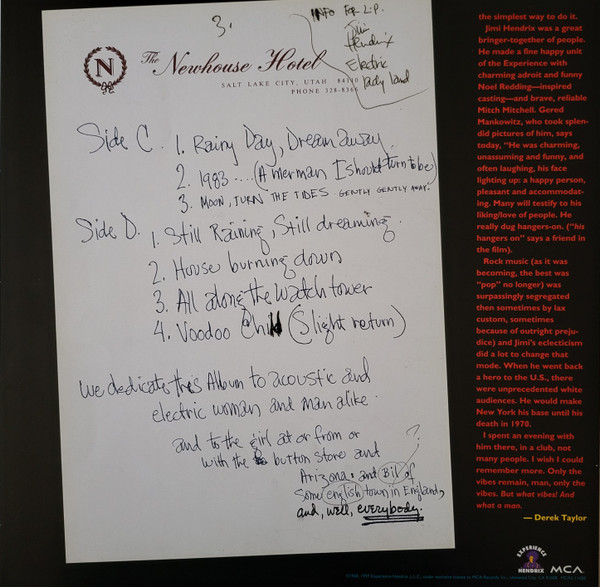 3.
INFO FOR L.P.
Jimi
Hendrix
Electric
Lady land
N
The Newhouse Hotel
SALT LAKE CITY, UTAH 84110
PHONE 328-8366
Side C. 1. Rainy Day, Dream away.
2. 1983....(A merman I should turn to be)
3. MOON, TURN THE TIDES GENTLY GENTLY AWAY.
Side D. 1. Still Raining, Still dreaming.
2. House burning down
3. All along the watch tower
4. Voodoo Child (Slight return)
We dedicate this Album to acoustic and
electric woman and man alike.
and to the girl at or from or
with the button store and
Arizona. and Bil of ?
Some english town in England,
and, well, everybody.
the simplest way to do it.
Jimi Hendrix was a great
bringer-together of people.
He made a fine happy unit
of the Experience with
charming adroit and funny
Noel Redding—inspired
casting—and brave, reliable
Mitch Mitchell. Gered
Mankowitz, who took splen-
did pictures of him, says
today, "He was charming,
unassuming and funny, and
often laughing, his face
lighting up: a happy person,
pleasant and accommodat-
ing. Many will testify to his
liking/love of people. He
really dug hangers-on. ("his
hangers on" says a friend in
the film).
Rock music (as it was
becoming, the best was
"pop" no longer) was
surpassingly segregated
then sometimes by lax
custom, sometimes
because of outright preju-
dice) and Jimi's eclecticism
did a lot to change that
mode. When he went back
a hero to the U.S., there
were unprecedented white
audiences. He would make
New York his base until his
death in 1970.
I spent an evening with
him there, in a club, not
many people. I wish I could
remember more. Only the
vibes remain, man, only the
vibes. But what vibes! And
what a man.
— Derek Taylor
EXPERIENCE
HENDRIX
MCA